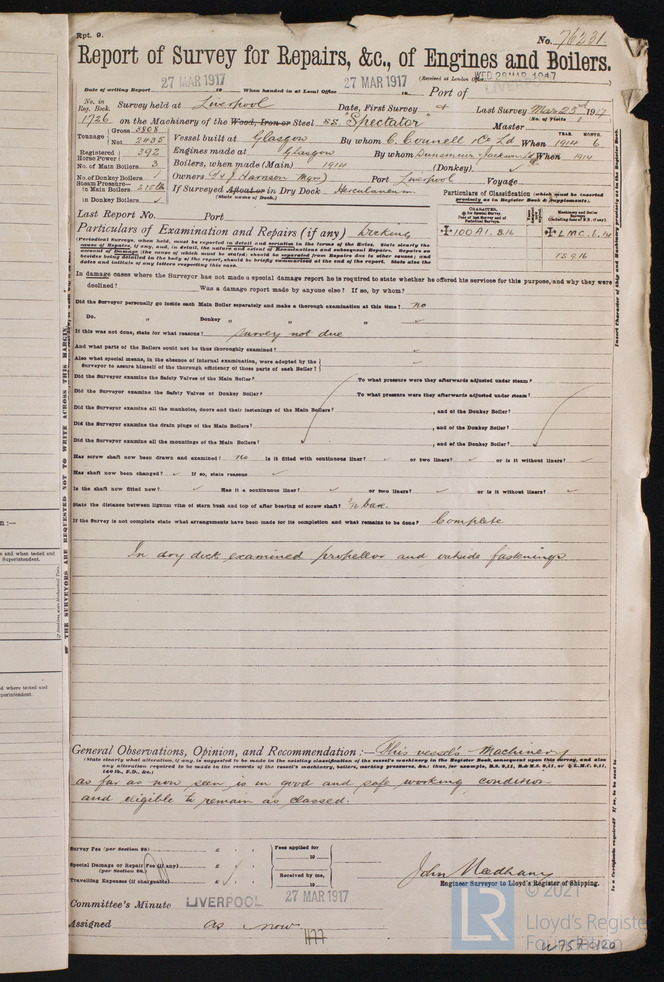 Rpt. 9.
No. 76231.
Report of Survey for Repairs, &c., of Engines and Boilers.
(Received at London Office WED. 28 MAR. 1917
Date of writing Report 27 MAR 1917 19 When handed in at Local Office 27 MAR 1917 19 Port of LIVERPOOL
No. in Reg. Book. Survey held at Liverpool Date, First Survey Last Survey Mar 23rd 1917
(No. of Visits 1
1726 on the Machinery of the Wood, Iron or Steel S.S. "Spectator" Master
Tonnage Gross 3808 Net 2435 Vessel built at Glasgow By whom C. Connell & Co Ld When YEAR. 1914 MONTH. 6
Registered Horse Power 392 Engines made at Glasgow By whom Dunsmuir & Jackson Ld When 1914
No. of Main Boilers 3 Boilers, when made (Main) 1914 (Donkey) ✓
No. of Donkey Boilers 1 Owners T & J Harrison Mgrs) Port Liverpool Voyage
Steam Pressure— in Main Boilers 215 lb If Surveyed Afloat or in Dry Dock Herculaneum
in Donkey Boilers ✓ (State name of Dock.)
Particulars of Classification (which must be inserted precisely as in Register Book & Supplements).
Last Report No. Port
CHARACTER.
Machinery and Boiler Surveys
Particulars of Examination and Repairs (if any) Docking
✠ 100A1. 8.16
✠ L.M.C. 6.14
T.S. 9.16
(Periodical Surveys, when held, must be reported in detail and seriatim in the terms of the Rules. State clearly the
cause of Repairs, if any, and, in detail, the nature and extent of Examinations and subsequent Repairs. Repairs on
account of Damage (the cause of which must be stated) should be separated from Repairs due to other causes; and
besides being detailed in the body of the report, should be briefly summarised at the end of the report. State also the
dates and initials of any letters respecting this case.
In damage cases where the Surveyor has not made a special damage report he is required to state whether he offered his services for this purpose, and why they were
declined? Was a damage report made by anyone else? If so, by whom?
Did the Surveyor personally go inside each Main Boiler separately and make a thorough examination at this time? no
Do. „ Donkey „ „ „ ✓
If this was not done, state for what reasons? Survey not due
And what parts of the Boilers could not be thoroughly examined?
Also what special means, in the absence of internal examination, were adopted by the
Surveyor to assure himself of the thorough efficiency of those parts of each Boiler?
Did the Surveyor examine the Safety Valves of the Main Boiler? To what pressure were they afterwards adjusted under steam?
Did the Surveyor examine the Safety Valves of Donkey Boiler? To what pressure were they afterwards adjusted under steam?
Did the Surveyor examine all the manholes, doors and their fastenings of the Main Boilers? , and of the Donkey Boiler?
Did the Surveyor examine the drain plugs of the Main Boilers? , and of the Donkey Boiler?
Did the Surveyor examine all the mountings of the Main Boilers? , and of the Donkey Boiler?
Has screw shaft now been drawn and examined? no Is it fitted with continuous liner? ✓ or two liners? ✓ or is it without liners? ✓
Has shaft now been changed? ✓ If so, state reasons ✓
Is the shaft now fitted new? ✓ Has it a continuous liner? ✓ or two liners? ✓ or is it without liners? ✓
State the distance between lignum vitæ of stern bush and top of after bearing of screw shaft?
If the Survey is not complete state what arrangements have been made for its completion and what remains to be done? Complete
In dry dock examined propeller and outside fastenings.
General Observations, Opinion, and Recommendation :— This vessel's Machinery
(State clearly what alteration, if any, is suggested to be made in the existing classification of the vessel's machinery in the Register Book, consequent upon this survey, and also
any alteration required to be made in the records of the vessel's machinery, boilers, working pressures, &c.; thus, for example,
140 lb., F.D., &c.)
as far as now seen is in good and safe working condition
and eligible to remain as classed.
Survey Fee (per Section 28) £ : :
Special Damage or Repair Fee (if any) (per Section 28.) £ : :
Travelling Expenses (if chargeable) £ : :
Fees applied for
19
Received by me,
19
John Needham
Engineer Surveyor to Lloyd's Register of Shipping.
Committee's Minute LIVERPOOL 27 MAR 1917
Assigned as now
© 2021
LR
Lloyd's Register
Foundation
W757-0120
THE SURVEYORS ARE REQUESTED NOT TO WRITE ACROSS THIS MARGIN.
n :—
and when tested and
Superintendent.
d where tested and
perintendent.